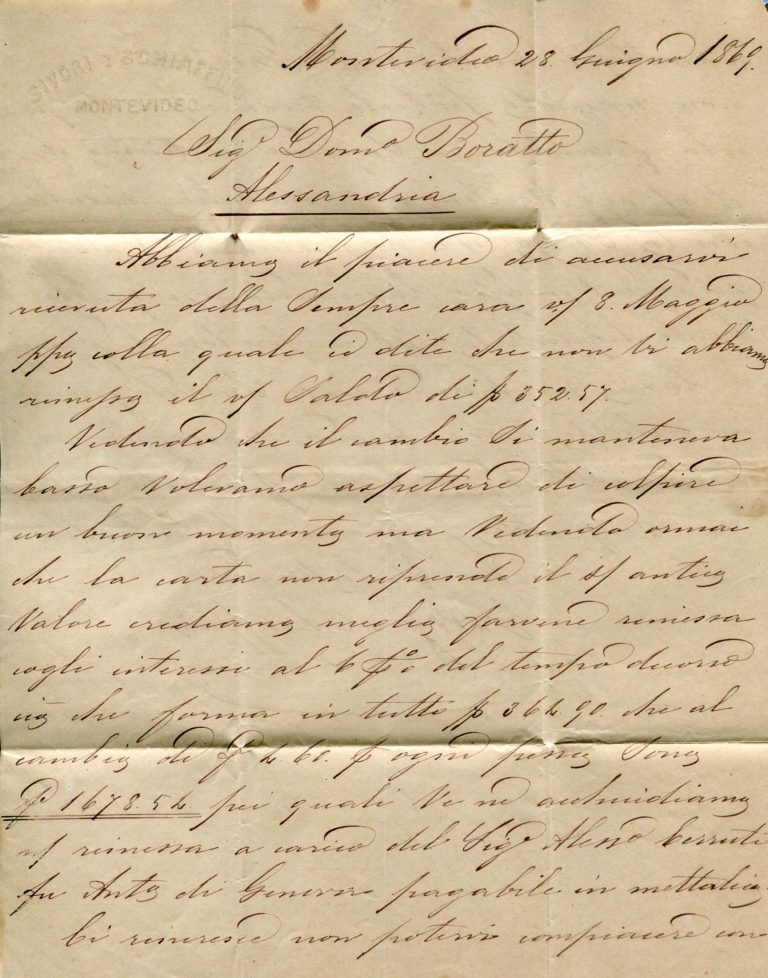 SIVORI Y SCHIAFFINO
MONTEVIDEO
Montevideo 28. Giugno 1869.
Sigr Domo Boratto
Alessandria
Abbiamo il piacere di accusarvi
ricevuta della Sempre cara v/ 8. Maggio
ppo colla quale ci dite che non vi abbiamo
rimesso il v/ Saldo di $ 352.57.
Vedendo che il cambio Si manteneva
basso Volevamo aspettare di colpire
un buon momento ma Vedendo ormai
che la carta non riprende il s/ antico
Valore crediamo meglio farvene rimessa
cogli interessi al 6 % del tempo decorso
ciò che forma in tutto $ 364.90. che al
cambio di £ 4.60. p ogni pezzo Sono
£ 1678.54 pei quali Ve ne acchiudiamo
n/ rimessa a carico del Sigr Aless Cerruti
fu Anto di Genova pagabile in mettalico.
Ci rincresce non potervi compiacere con